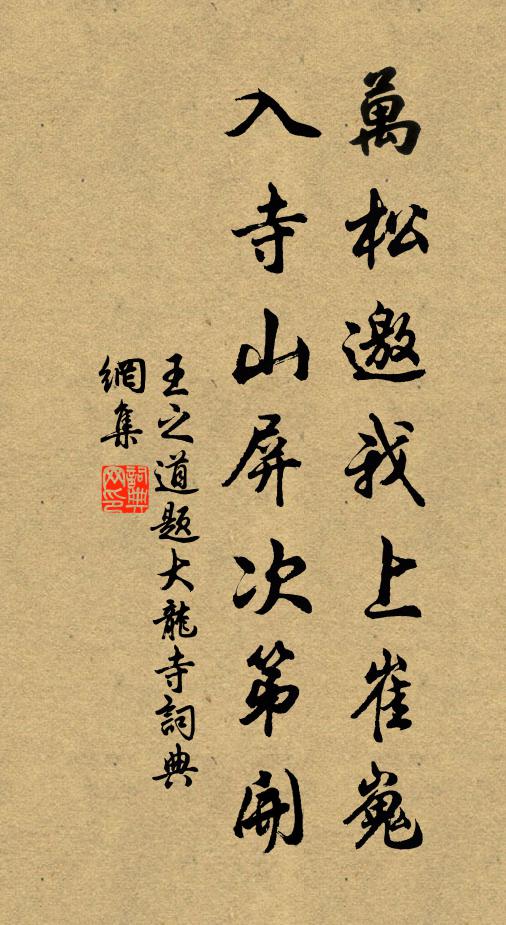 萬松邀我上崔嵬
入寺山屏次第開
王之道題大龍寺詞典
網集
詞典
网印